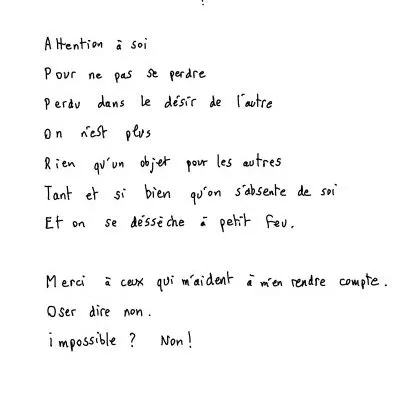 Attention à soi
Pour ne pas se perdre
Perdu dans le désir de l'autre
On n'est plus
Rien qu'un objet pour les autres
Tant et si bien qu'on s'absente de soi
Et on se déssèche à petit feu.
Merci à ceux qui m'aident à m'en rendre compte.
Oser dire non.
impossible ? Non !